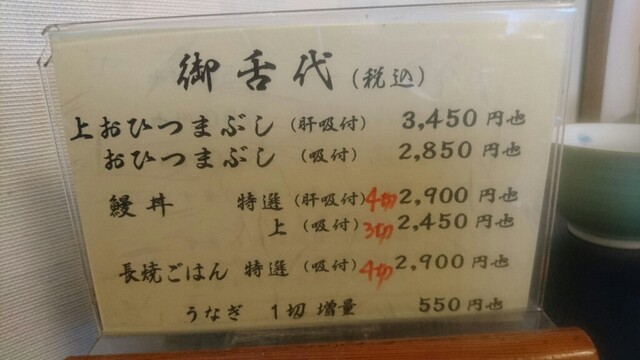 御舌代(税込)
上おひつまぶし(肝吸付) 3,450円也
おひつまぶし(吸付) 2,850円也
鰻丼 特選(肝吸付)4切2,900円也
上(吸付)3切2,450円也
長焼ごはん 特選(吸付)4切2,900円也
うなぎ 1切増量 550円也